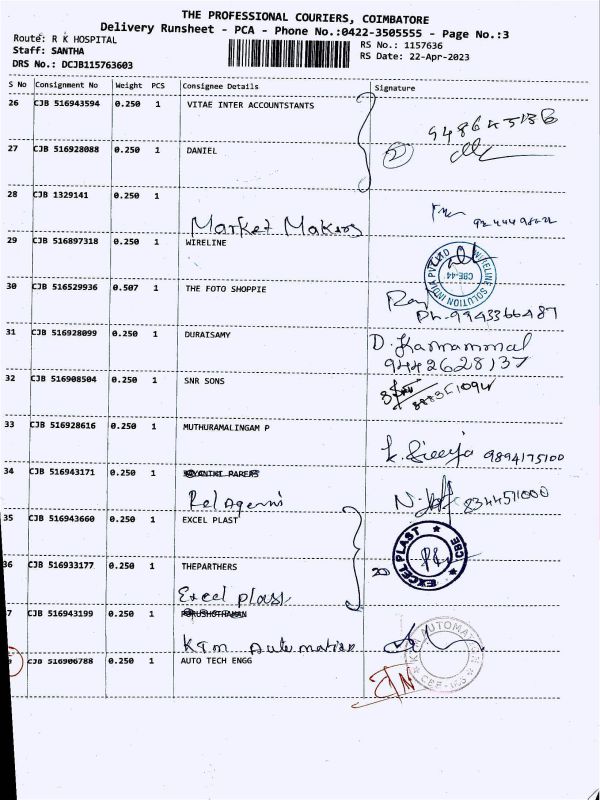 THE PROFESSIONAL COURIERS, COIMBATORE
Delivery Runsheet - PCA - Phone No.:0422-3505555 - Page No.:3
Route: R K HOSPITAL
Staff: SANTHA
DRS No.: DCJB115763603
RS No.: 1157636
RS Date: 22-Apr-2023
S No Consignment No Weight PCS Consignee Details Signature
26 CJB 516943594 0.250 1 VITAE INTER ACCOUNTSTANTS
27 CJB 516928088 0.250 1 DANIEL
2
28 CJB 1329141 0.250 1
Market Makers
29 CJB 516897318 0.250 1 WIRELINE
WIRELINE SOLUTION INDIA PVT LTD
CBE-44
30 CJB 516529936 0.507 1 THE FOTO SHOPPIE
Ph-9943366487
31 CJB 516928099 0.250 1 DURAISAMY
9442628137
32 CJB 516908504 0.250 1 SNR SONS
33 CJB 516928616 0.250 1 MUTHURAMALINGAM P
9894175100
34 CJB 516943171 0.250 1
8344571000
35 CJB 516943660 0.250 1 EXCEL PLAST
EXCEL PLAST
CBE
36 CJB 516933177 0.250 1 THEPARTHERS
20
Excel plast
7 CJB 516943199 0.250 1
KTM Automation
CJB 516906788 0.250 1 AUTO TECH ENGG